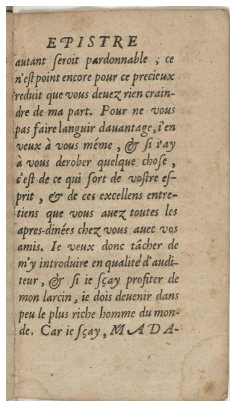 EPISTRE
autant seroit pardonnable ; ce
n'est point encore pour ce precieux
reduit que vous devez rien crain-
dre de ma part. Pour ne vous
pas faire languir davantage, i'en
veux à vous même, & si i'ay
à vous derober quelque chose,
c'est de ce qui sort de vostre es-
prit, & de ces excellens entre-
tiens que vous avez toutes les
apres-dinées chez vous avec vos
amis. Ie veux donc tâcher de
m'y introduire en qualité d'audi-
teur, & si ie sçay profiter de
mon larcin, ie dois devenir dans
peu le plus riche homme du mon-
de. Car ie sçay, MADA-